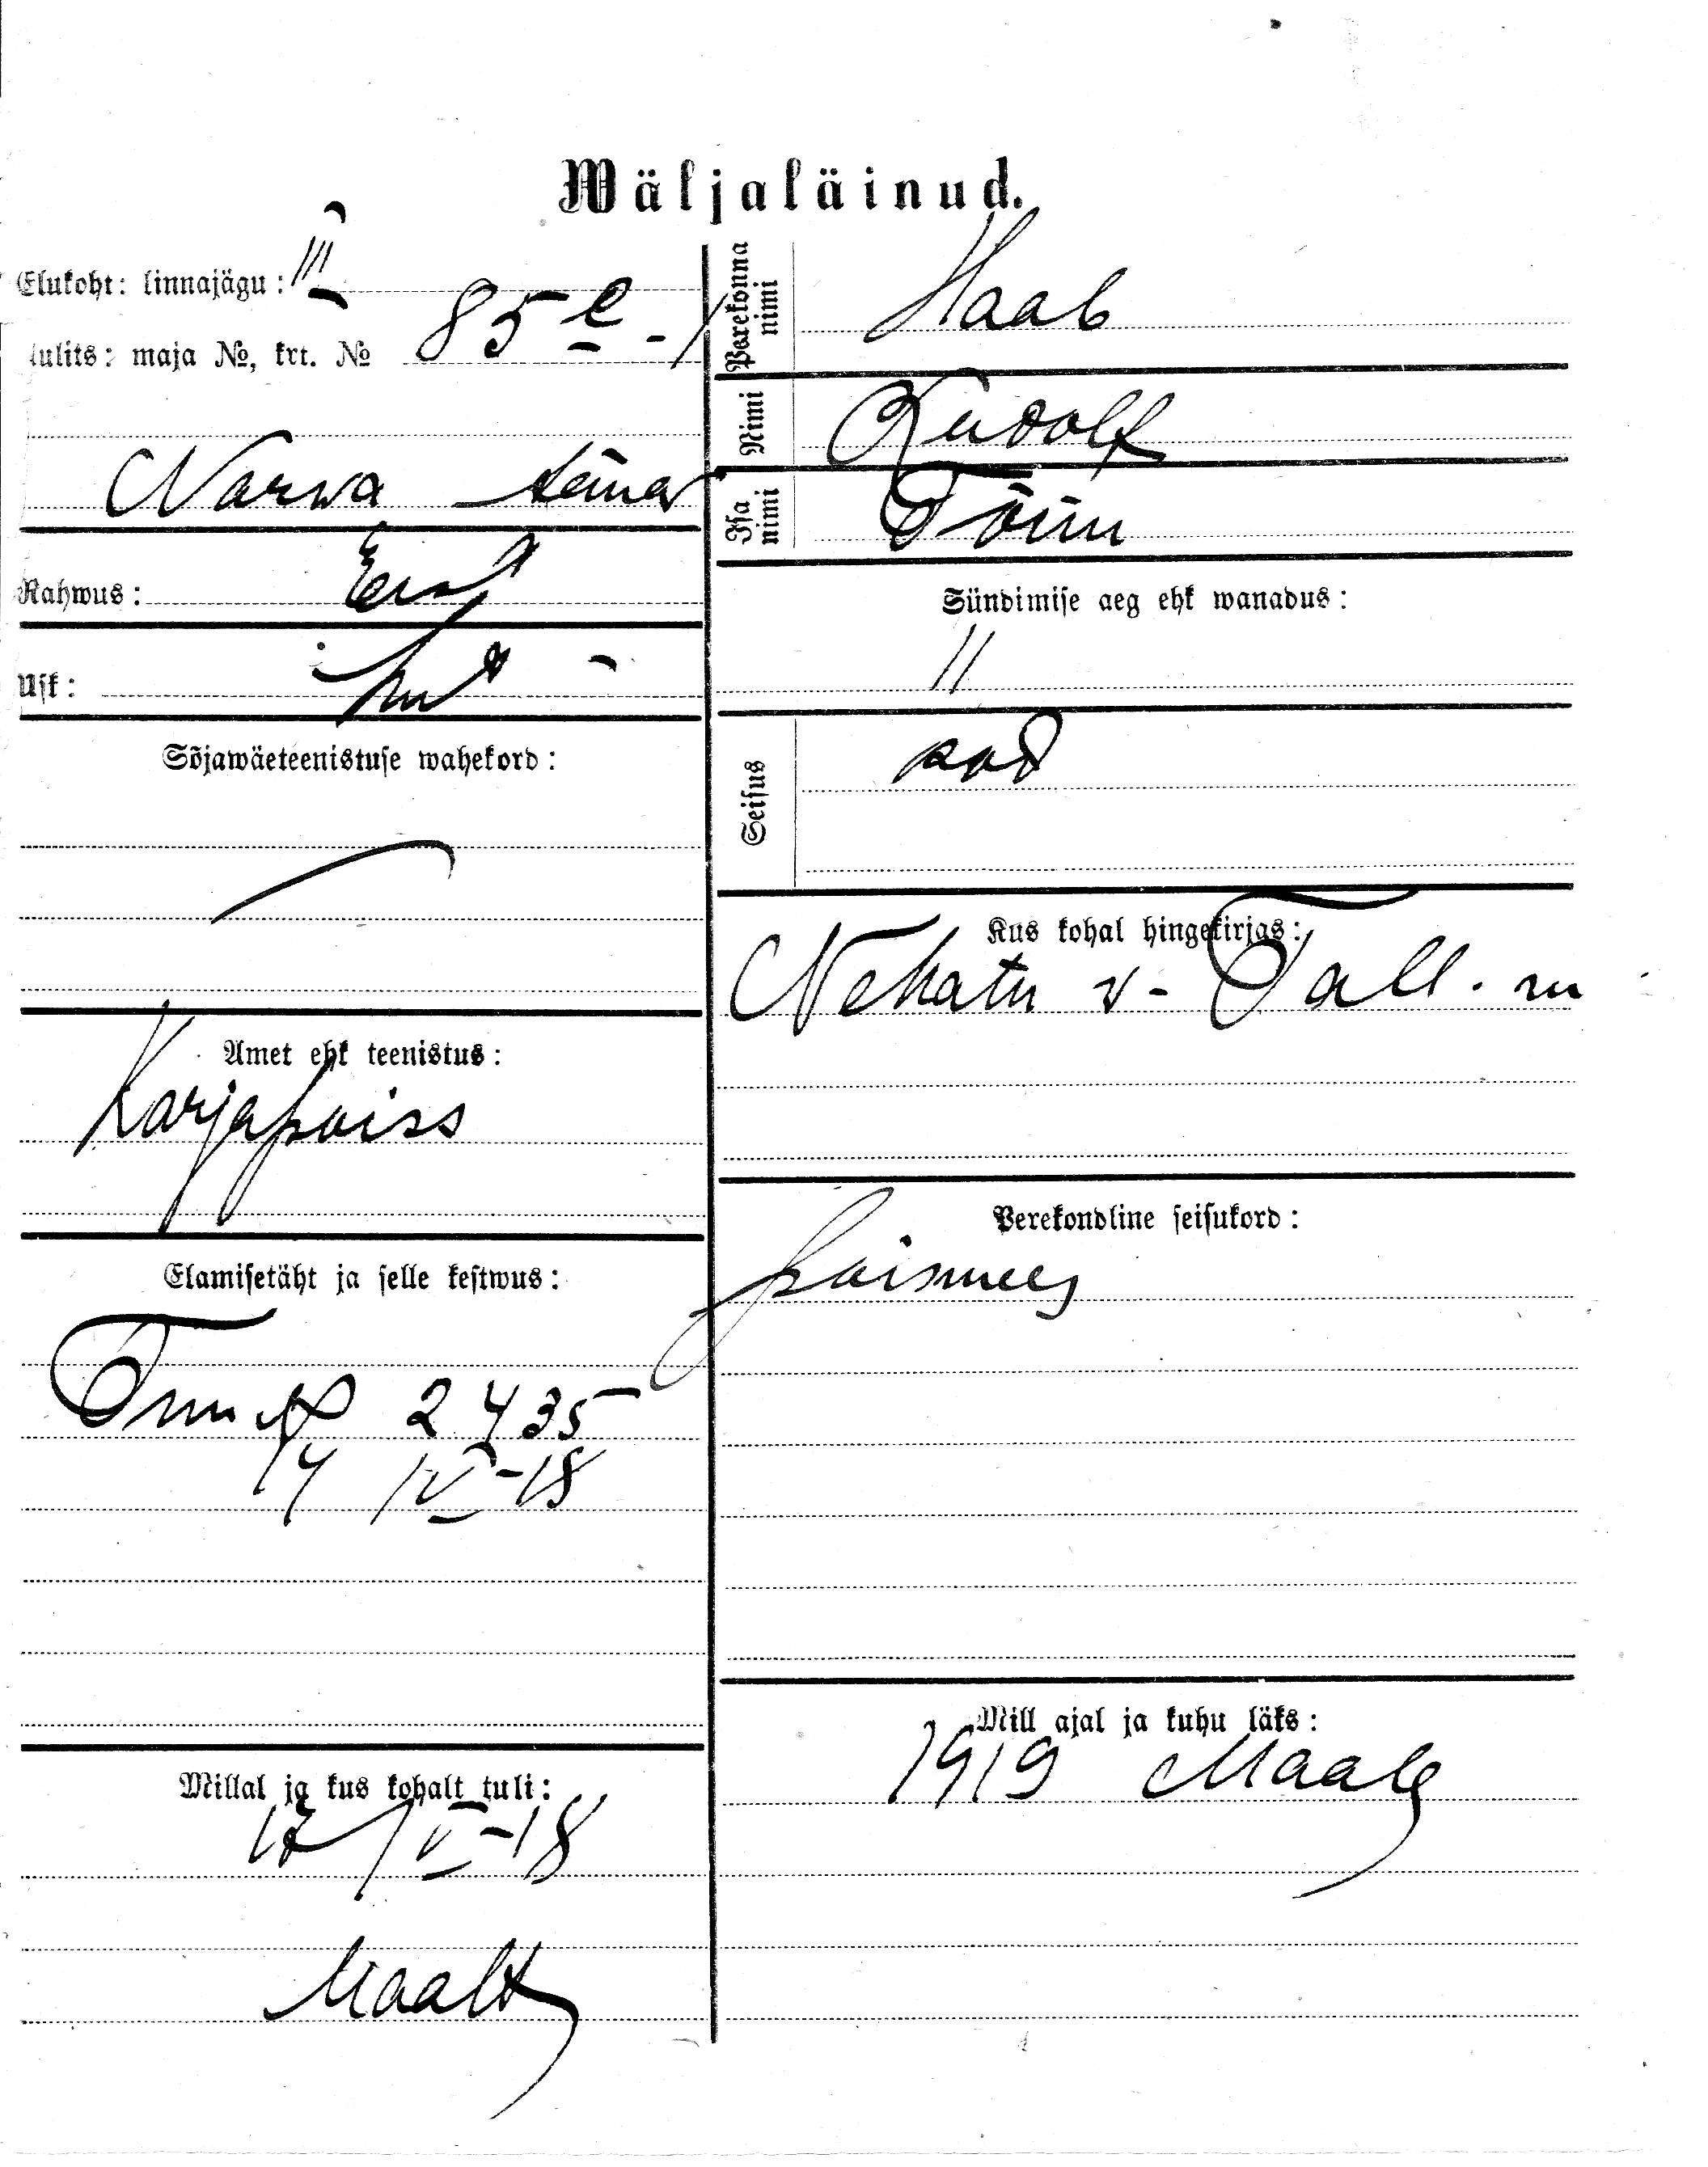 Wäljaläinud.
Elukoht: linnajägu: III
uulits: maja №, krt. № 85 e - 1
Narwa tänav
Rahwus: Eest
Usk: Lut
Sõjawäeteenistuse wahekord:
Amet ehk teenistus:
Karjapoiss
Elamisetäht ja selle kestwus:
№ 2435
14 IV-18
Millal ja kus kohalt tuli:
17 IV-18
Maalt
Perekonna nimi Haab
Nimi Rudolf
Isa nimi Tõnu
Sündimise aeg ehk wanadus:
11
Seisus
Kus kohal hingekirjas:
Nehatu v- Tall. m
Perekondline seisukord:
poismees
Mill ajal ja kuhu läks:
1919 Maale